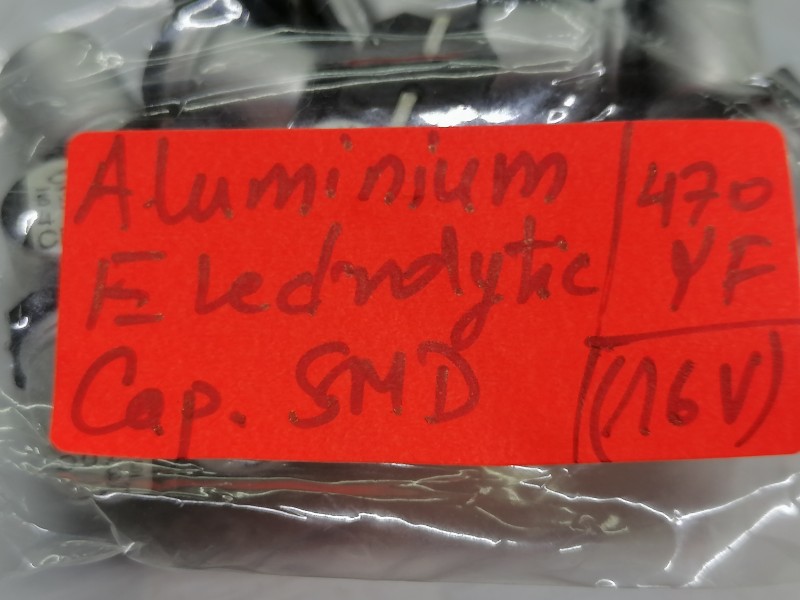 Aluminium
Electrolytic
Cap. SMD
470
µF
(16V)